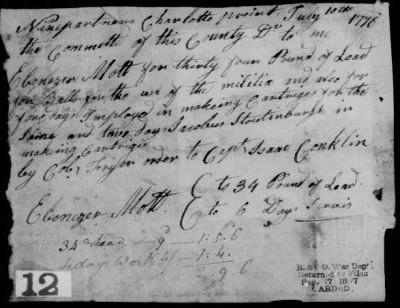 Ninepartners Charlotte precint July 10th 1776
the Committe of this County Dr to me
Ebenezer Mott for thirty four Pound of Lead
for Balls for the use of the militia and also for
four days Imployed in makeing Cartriges for the
Same and two days Jacobus Stoutenburgh in
making Cartrigis
by Order to Capt Isaac Conklin
Ebenezer Mott. to 34 Pound of Lead
to 6 Days Servis
34 lead 9d 1:5:6
6 days work 4/ 1:4.
2 9.6
12
R. & P. O. War Dep't
Returned to Files
Sep. 17 1897
CARDED.